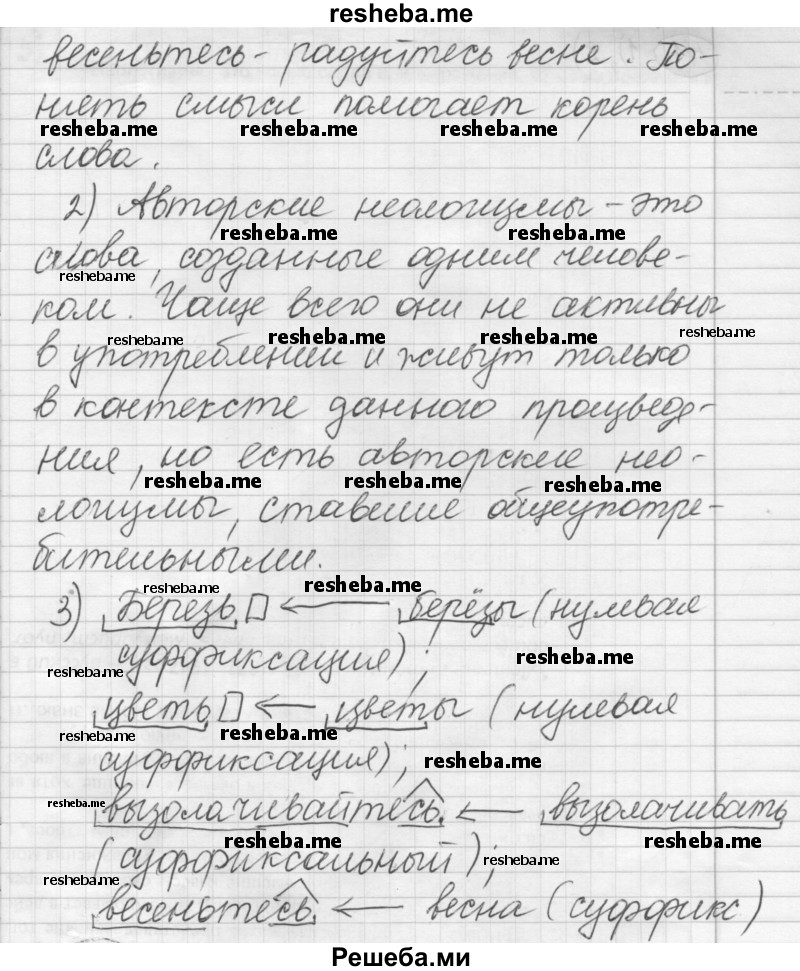 resheba.me
весеньтесь - радуйтесь весне. По-
нять смысл помогает корень
resheba.me resheba.me resheba.me resheba.me
слова.
2) Авторские неологизмы - это
resheba.me resheba.me
слова, созданные одним челове-
resheba.me
ком. Чаще всего они не активны
resheba.me resheba.me resheba.me resheba.me
в употреблении и живут только
в контексте данного произведе-
ния, но есть авторские нео-
resheba.me resheba.me resheba.me
логизмы, ставшие общеупотре-
бительными.
resheba.me resheba.me
3) Березь ← берёзы (нулевая
суффиксация);
resheba.me resheba.me
цветь ← цветы (нулевая
resheba.me resheba.me
суффиксация);
resheba.me
resheba.me
вызолачивайтесь ← вызолачивать
resheba.me resheba.me
(суффиксальный);
resheba.me
resheba.me
весеньтесь ← весна (суффикс)
Решеба.ми